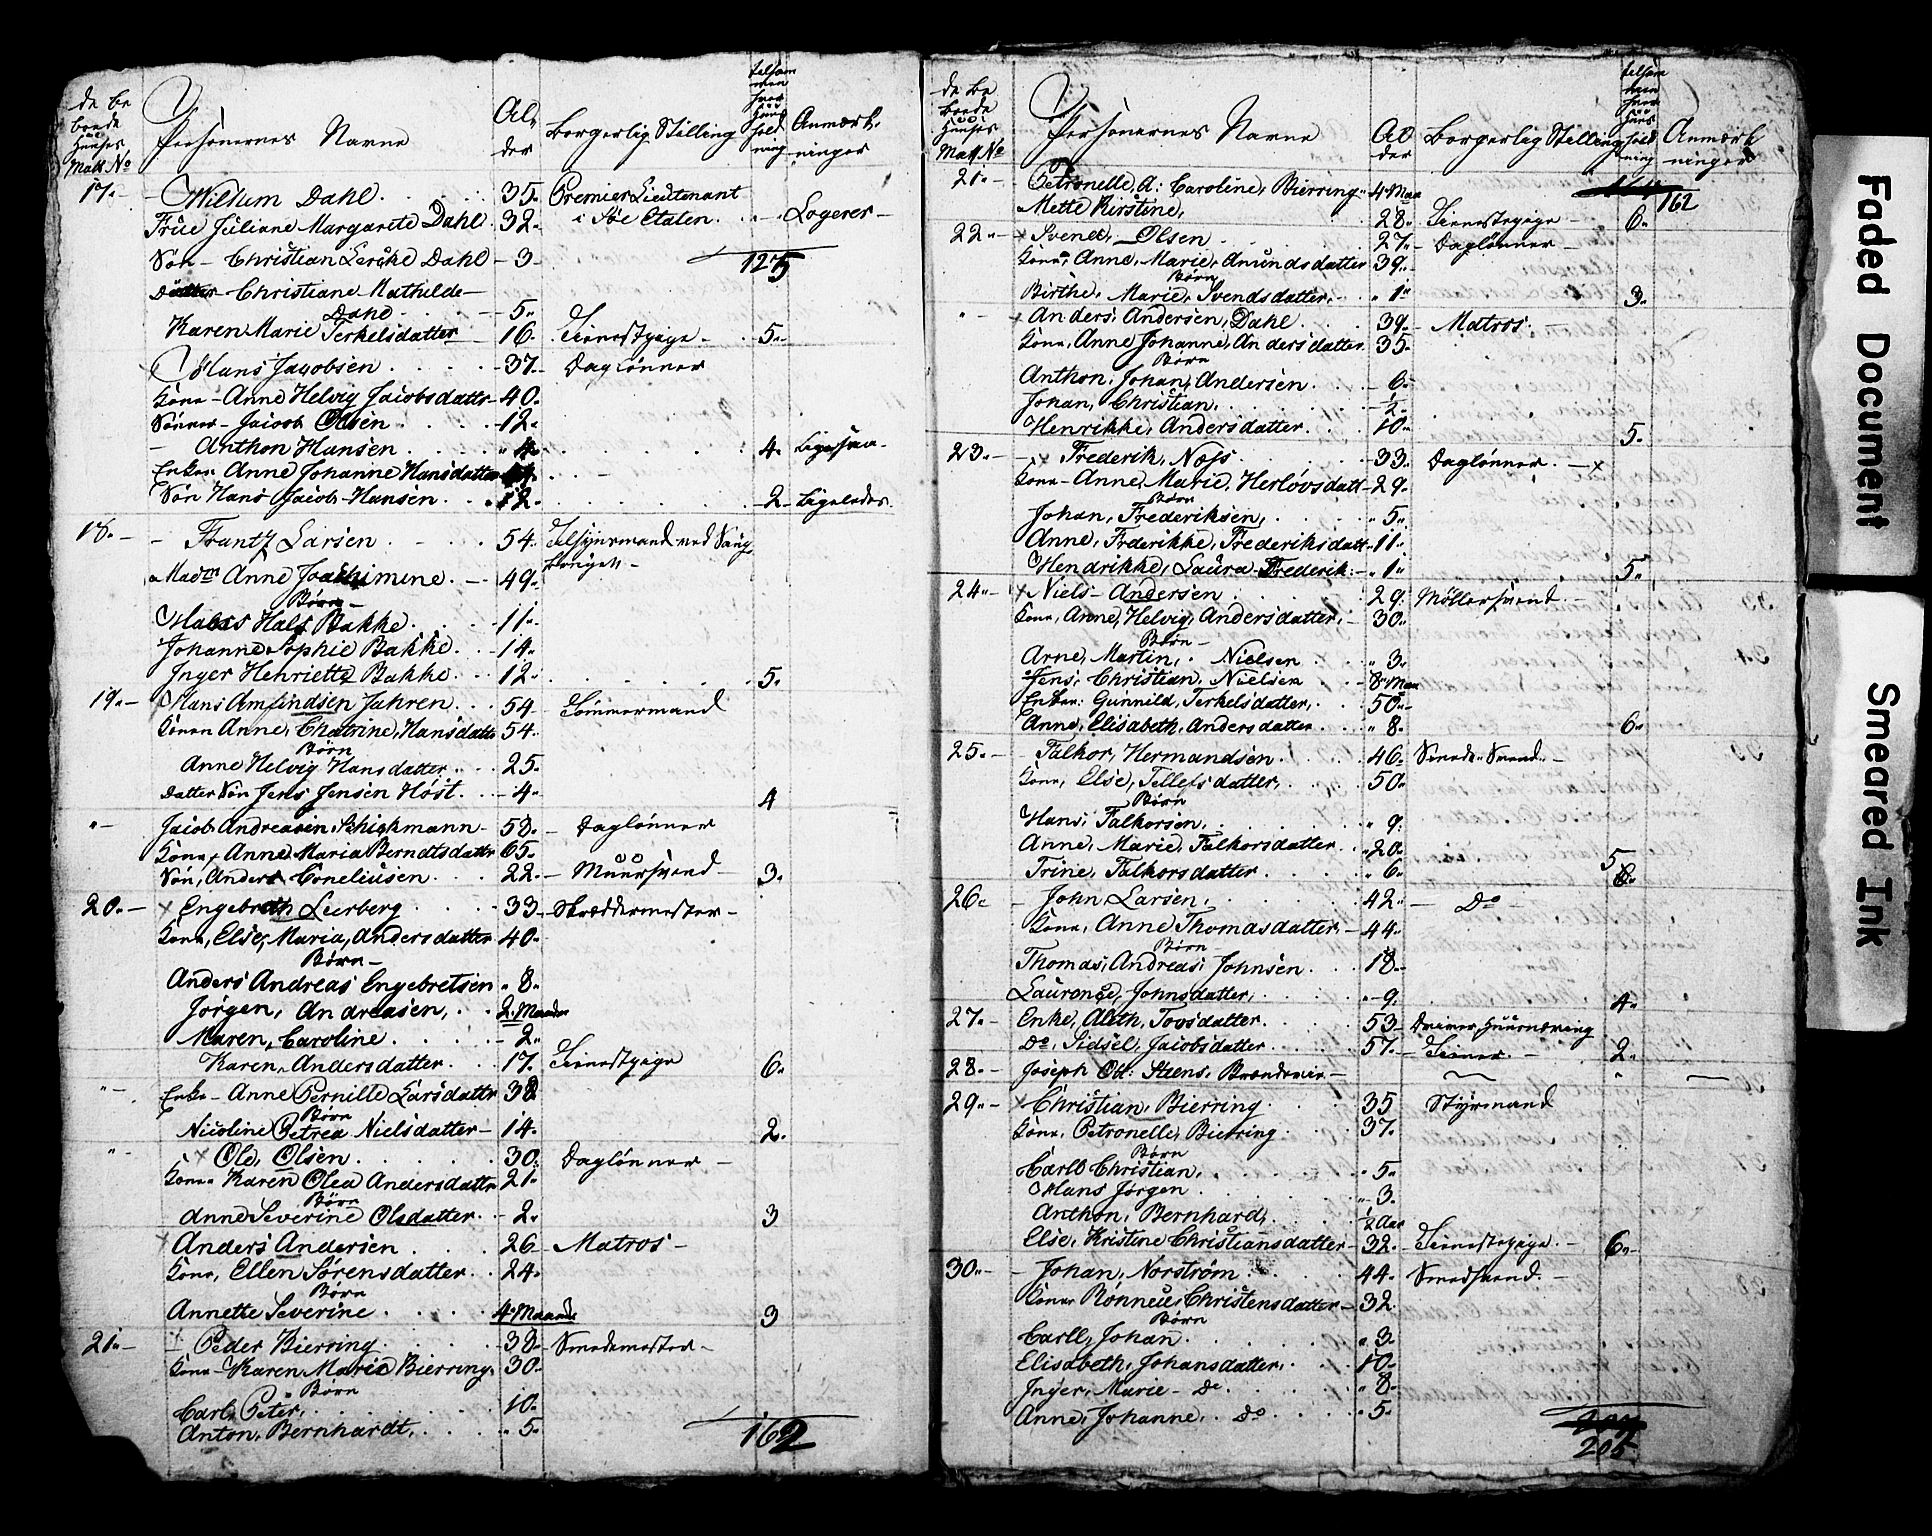 de be
boede
Huuses
Matr No
Personernes Navne
Al,
der
Borgerlig Stilling
tilsam
men
hver
Huus
hold
ning
Anmærk,
ninger
17.- - Wildum Dahl 35. Premier Lieutenant
Frue Juliane Margarete Dahl 32. i Søe Etaten Logerer -
Søn - Christian Lerche Dahl - 3 - 125
Datter Christiane Mathilde -
Dahl - 5.
Karen Marie Terkelsdatter 16. Tienestepige - 5.
Hans Jacobsen 37. Daglønner
Kone - Anne Helvig Jacobsdattr - 40.
Sønner - Jacob Olsen 12.
- Anthon Hansen 4. 4. Ligesaa -
Enken Anne Johanne Hansdatter
Søn Hans Jacob Hansen 12. 2 - Ligeledes.
18. - - Frantz Larsen 54. Tilsynsmand ved Saug
Madm Anne Joachimine - 49. bruget -
Børn -
Hans Half Bakke 11.
Johanne Sophie Bakke 14.
Inger Henriette Bakke 12. 5.
19. - Hans Amundsen Jahren 54 - Tømmermand
Konen Anne, Chatrine, Hansdattr 54.
Børn
Anne Helvig Hansdatter 25.
Datter Søn Jens Jensen Høst - 4. 4
" - Jacob Andreasen Schickmann - 58. - Daglønner
Kone, Anne Maria Berndtsdattr 65.
Søn, Anders Corneliusen 22. - Muursvend - 3.
20. - x Engebreth Leerberg 33 - Skræddermester -
Kone, Else, Maria, Andersdatter 40.
Børn -
Anders Andreas Engebretsen " 8.
Jørgen, Andreasen, 2. Maaneder
Maren, Caroline - 2.
Karen, Andersdatter 17. Tienestepige 6.
" - Enke - Anne Pernille Larsdatter 38
Børn
Nicoline Petrea Nielsdatter - 14. 2.
" - x Ole, Olsen 30. Daglønner -
Kone Karen Olea Andersdattr 21.
Børn
Anne Severine Olsdatter - 2. 3
x Anders Andersen 26 - Matros -
Kone, Ellen Sørensdatter 24.
Børn
Annette Severine 4. Maaneder 3
21. - - Peder Bierring 38. - Smedemester -
Kone - Karen Marie Bierring, 30.
Børn
Carl, Peter, 10.
Anton, Bernhardt, " 5. 162
de be
boede
Huuses
Matr No
Personernes Navne
Al
der
Borgerlig Stilling
tilsam
men
hver
Huus
hold
ning
Anmærk
ninger
21. - Petronelle, A: Caroline, Bierring 4. Maa 162
Mette Kirstine, 28. Tienestepige - 6.
22. - x Svend, Olsen 27. - Daglønner -
Kone, Anne, Marie, Amundsdatter 39.
Børn
Birthe, Marie, Svendsdatter, " 1 " 3.
" - x Anders, Andersen, Dahl 39. - Matros.
Kone, Anne Johanne, Andersdatter 35.
Børn
Anthon, Johan, Andersen - 6.
Johan, Christian, - ½.
Henrikke, Andersdatter 10. 5.
23. - - x Frederik, Næss 33. Daglønner. - x
Kone - Anne, Marie, Herløvsdatt - 29.
Børn
Johan, Frederiksen, " 5.
Anne, Frederikke, Frederiksdatt - 11.
Hendrikke, Laura Frederik: - " 1 " 5.
24. - x Niels - Andersen 29. Møllersvend. -
Kone, Anne, Helvig, Andersdatter, - 30.
Børn -
Arne, Martin, Nielsen " 3.
Jens, Christian, Nielsen 8. Maa
Enken: Gunnild, Terkelsdatter, 50.
Anne, Elisabeth, Andersdatter " 8. 6.
25. - - Falkor, Hermandsen 46. Smede Svend. -
Kone, Else, Tellefsdatter, 50.
Børn
Hans, Falkorsen, " 9.
Anne, Marie, Falkorsdatter " 20.
Trine, Falkorsdatter " 6. 5
26. - John Larsen, 42. - Do -
Kone, Anne Thomasdatter, - 44.
Børn -
Thomas, Andreas, Johnsen 18.
Lauronse, Johnsdatter, " 9. 4.
27. - Enke, Aleth, Tovsdatter 53 Driver, Huusnæring
Do, Sidsel, Jacobsdatter 57. - Tiener. - 2.
28. - Joseph Od:
29. - x Christian, Bierring 35 Styrmand
Kone, Petronelle, Bierring 37.
Børn
Carl Christian, " 5.
Hans Jørgen " 3.
Anthon, Bernhard, ½ Aar
Else, Kristine Christiansdatter - 32. - Tienestepige. - 6. -
30. - - Johan, Norstrøm 44. Smedsvend. -
Kone Rønneu, Christensdatter - 32.
Børn
Carll, Johan " 3.
Elisabeth, Johansdatter, 10.
Inger, Marie - Do " 8.
Anne, Johanne, Do " 5.
205.
Faded Document
Smeared Ink